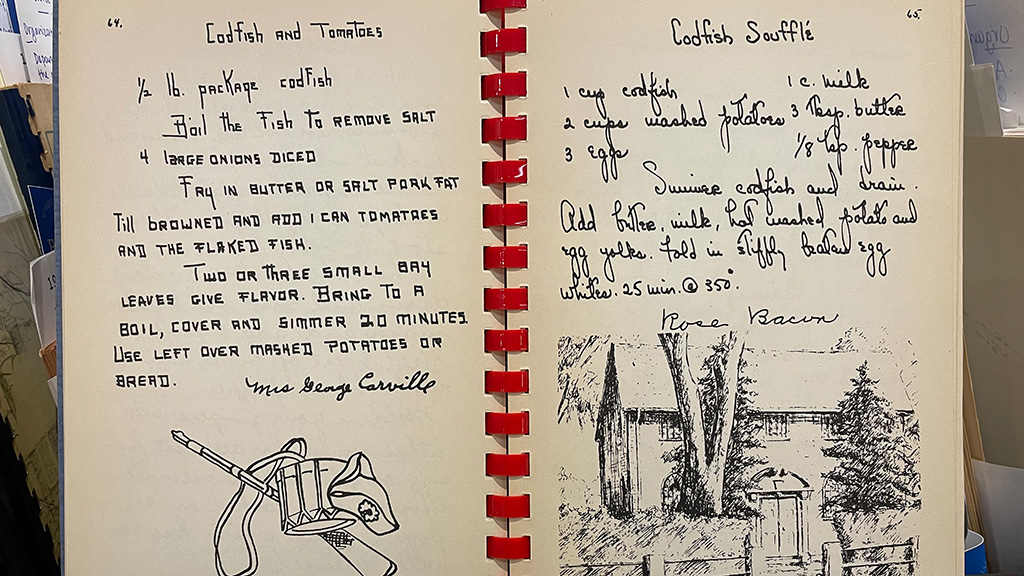 64.
Codfish and Tomatoes
½ lb. package codfish
Boil the Fish to remove salt
4 large onions diced
Fry in butter or salt pork fat
till browned and add 1 can tomatoes
and the flaked fish.
Two or three small bay
leaves give flavor. Bring to a
boil, cover and simmer 20 minutes.
Use left over mashed potatoes or
bread.
Mrs George Carville
65.
Codfish Soufflé
1 cup codfish 1 c. milk
2 cups mashed potatoes 3 Tbsp. butter
3 eggs 1/8 tsp. pepper
Simmer codfish and drain.
Add butter, milk, hot mashed potato and
egg yolks. Fold in stiffly beaten egg
whites. 25 min. @ 350°.
Rose Bacon